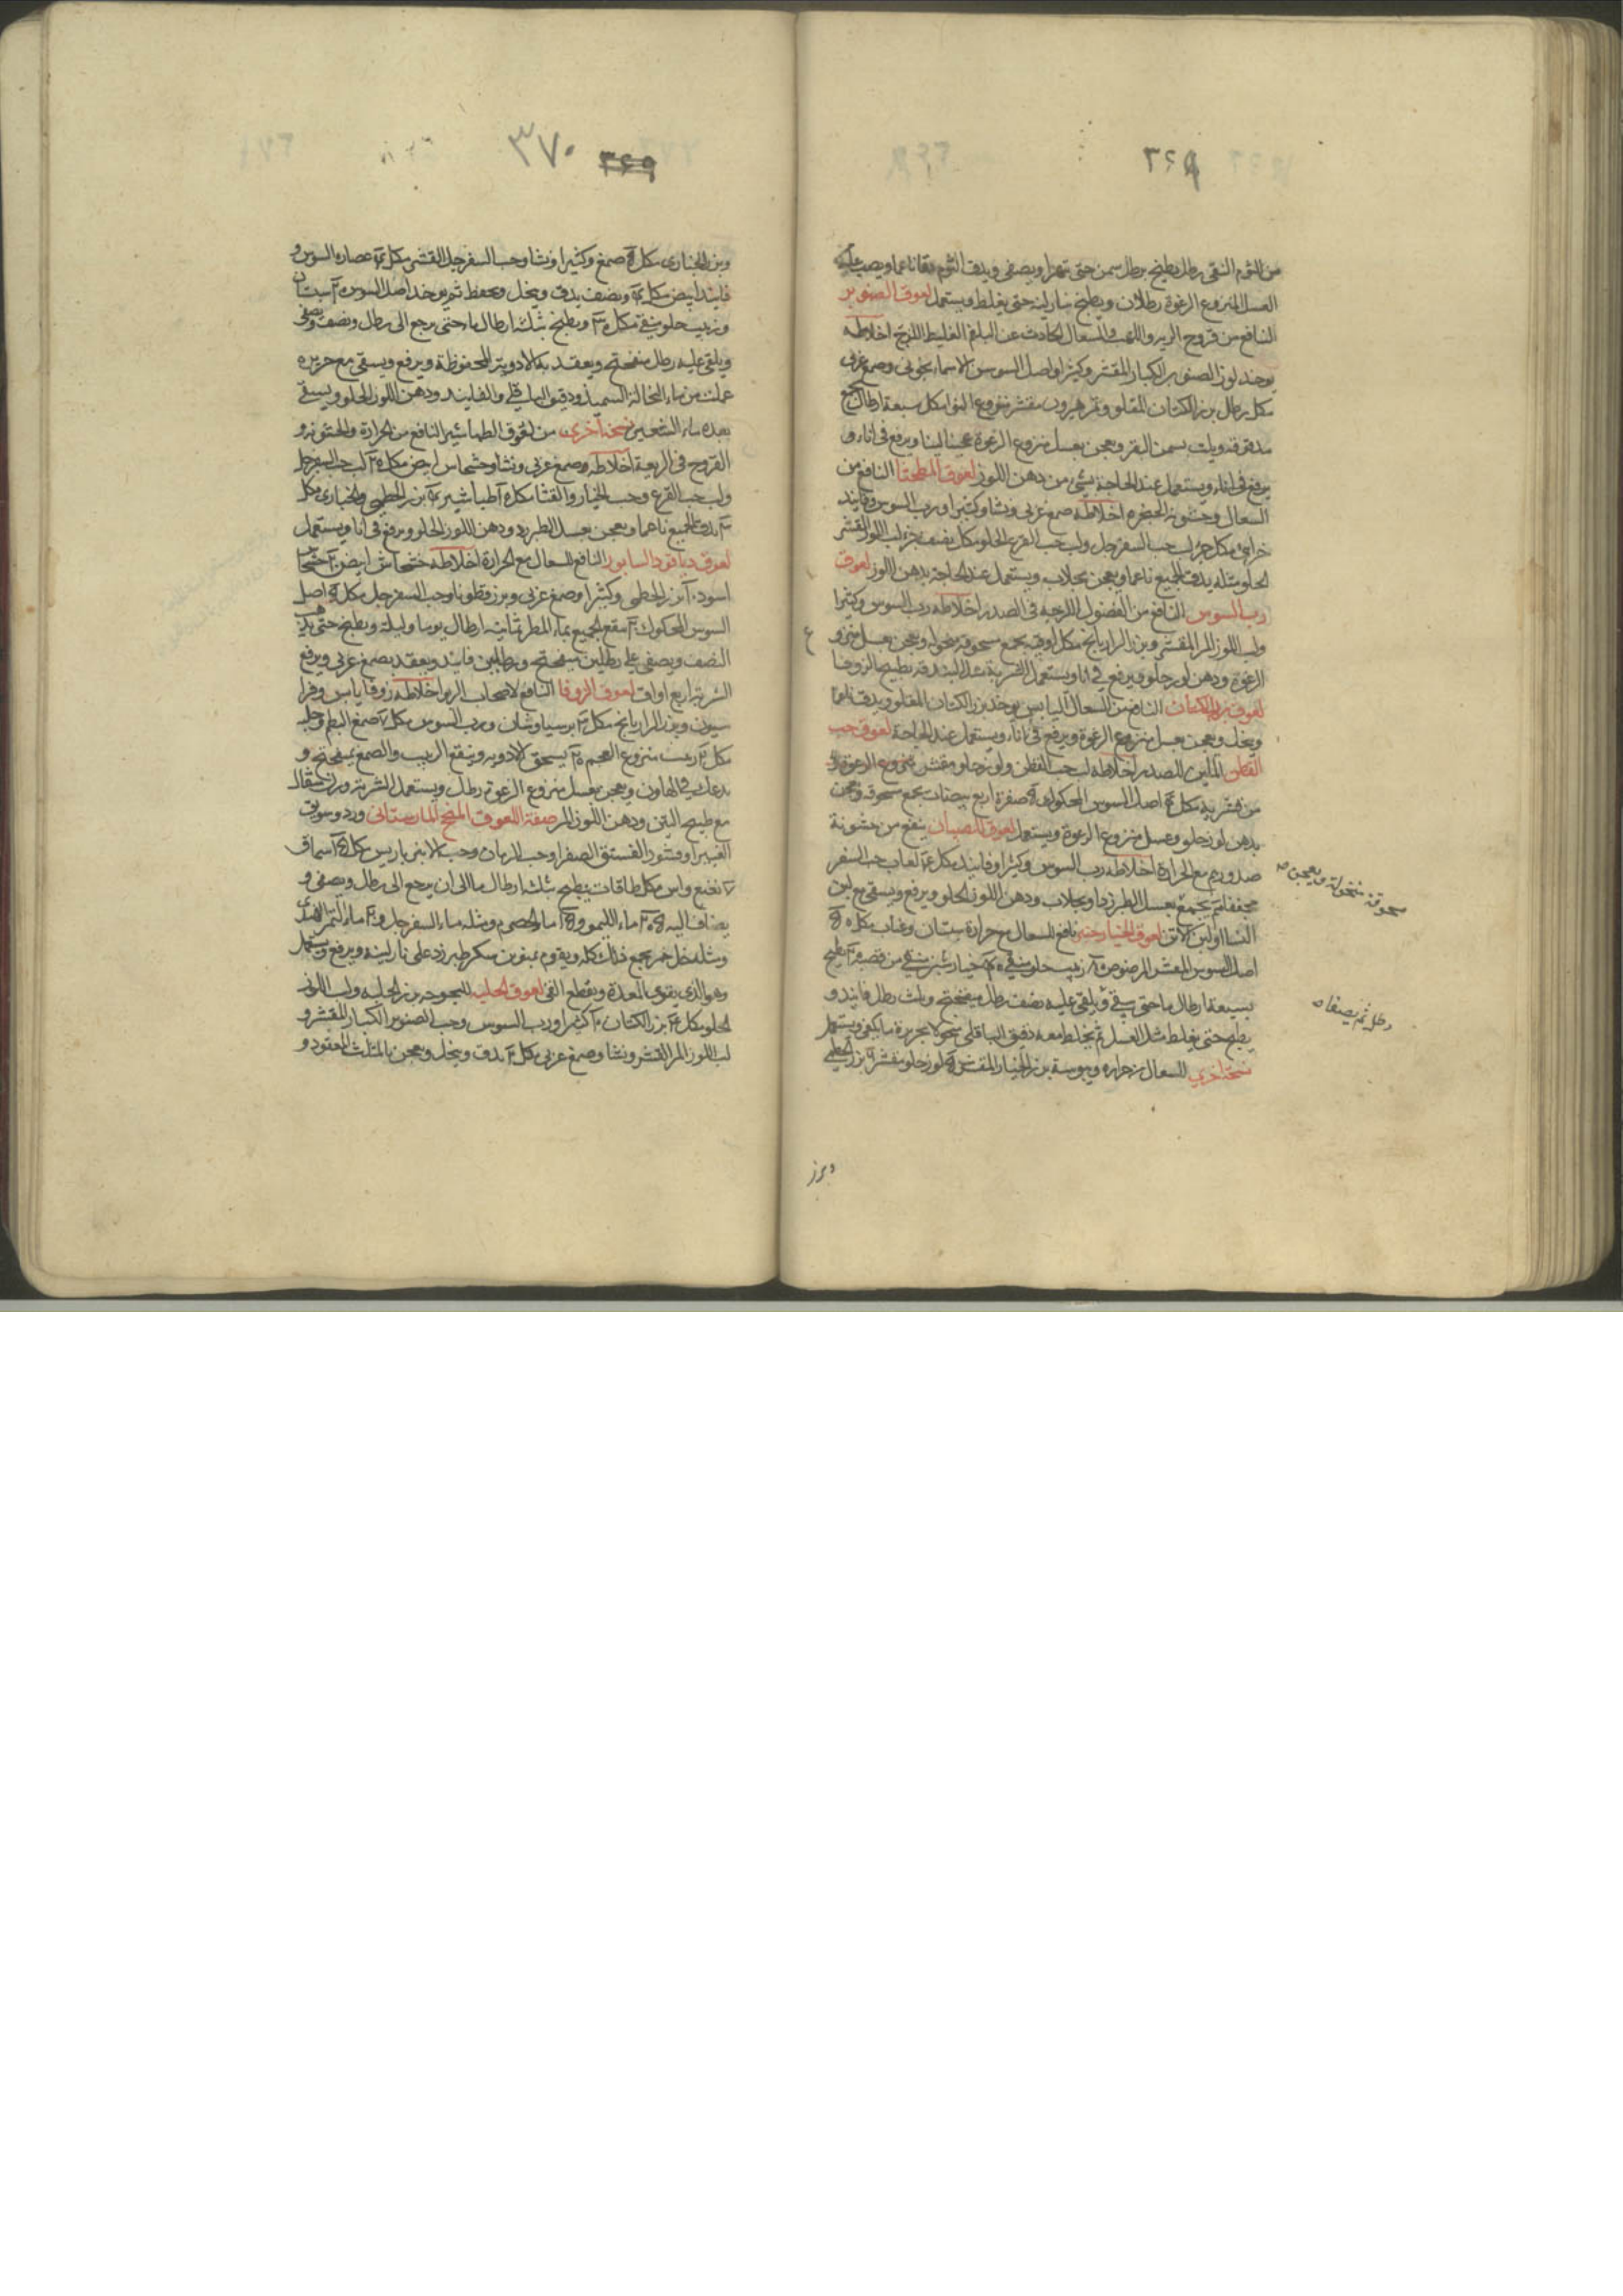 ٣٦٩
من الثوم النقى رطل يطبخ برطل سمن حتى يتهرا ويصفى ويدق الثوم دقا ناعما ويصب عليه
العسل المنزوع الرغوة رطلان ويطبخ بنار لينة حتى يغلظ ويستعمل لعوق الصنوبر
النافع من قروح الريه والسعال الحادث عن البلغم الغليظ اللزج اخلاطه
يوخذ لوز الصنوبر الكبار المقشر وكثيرا واصل السوسن وصمغ عربى
مكل رطل بزر الكتان المقلو وتمر هيرون مقشر منزوع النوا مكل سبعة ارطال يجمع
مدقوقه ويلت بسمن البقر ويعجن بعسل منزوع الرغوة عجينا لينا ويرفع فى اناء و
يرفع فى اناء ويستعمل عند الحاجة بشئ من دهن اللوز لعوق النافع من
السعال وخشونة الحنجره اخلاطه صمغ عربى ونشا وكثيرا ورب السوس وفانيد
خزاينى مكل جزء لب حب السفرجل ولب حب القرع الحلو مكل نصف جزء لب اللوز المقشر
الحلو مثله يدق الجميع ناعما ويعجن بجلاب ويستعمل عند الحاجة بدهن اللوز لعوق
رب السوس النافع من الفضول اللزجه فى الصدر اخلاطه رب السوس وكثيرا
ولب اللوز المر المقشر وبزر الرازيانج مكل اوقيه يجمع مسحوقه منخوله ويعجن بعسل منزوع
الرغوة ودهن لوز حلو ويرفع فى انا ويستعمل الشربة مثل البندقه بطبيخ الزوفا
لعوق بزر الكتان النافع من السعال اليابس يوخذ بزر الكتان المقلو ويدق ناعما
وينخل ويعجن بعسل منزوع الرغوة ويرفع فى اناء ويستعمل عند الحاجة لعوق حب
القطن الملين للصدر اخلاطه لب حب القطن ولوز حلو مقشر
من قشريه مكل اصل السوس المحكوك صفرة اربع بيضات يجمع مسحوقه ويعجن
بدهن لوز حلو وعسل منزوع الرغوة ويستعمل لعوق للصبيان ينفع من خشونة
صدورهم مع الحرارة اخلاطه رب السوس وكثيرا وفانيد مكل لعاب حب السفرجل
مجففا ثم يجمع بعسل الطبرزد او بجلاب ودهن اللوز الحلو ويرفع ويسقى مع لبن
النسا او لبن الاتن لعوق الخيارشنبر نافع للسعال مع حرارة سبستان وعناب مكل
اصل السوس المقشر المرضوض زبيب حلو منقى خيار شنبر منقى من قصبه يطبخ
بسبعة ارطال ما حتى ويلقى عليه نصف رطل ميفختج وثلث رطل فانيد و
يطبخ حتى يغلظ مثل العسل ثم يخلط معه دقيق الباقلى منخولا بحريرة ما يكفى ويستعمل
نسخة اخرى للسعال مع حراره ويبوسة بزر الخيار المقشر لوز حلو مقشر بزر الخطمى
مسحوقة منخولة ويعجن
رطل ثم يصفا
وبزر
٣٧٠ ٣٦٩
وبزر الخبازى مكل صمغ وكثيرا ونشا وحب السفرجل المقشر مكل عصارة السوس و
فانيد ابيض مكل ونصف يدق وينخل ويحفظ ثم يوخذ اصل السوس سبستان
وزبيب حلو منقى مكل ويطبخ بثلثة ارطال ما حتى يرجع الى رطل ونصف ويصفى
ويلقى عليه رطل ميفختج ويعقد بالادوية المحفوظة ويرفع ويسقى مع حريره
عملت من ماء النخالة السميذ ودقيق الباقلى والفانيد ودهن اللوز الحلو ويسقى
بعده ماء الشعير نسخة اخرى من لعوق الطباشير النافع من الحرارة والخشونه و
القروح فى الريه اخلاطه صمغ عربى ونشا وخشخاش ابيض مكل لب حب السفرجل
ولب حب القرع وحب الخيار والقثا مكل طباشير بزر الخطمى والخبازى مكل
يدق الجميع ناعما ويعجن بعسل الطبرزد ودهن اللوز الحلو ويرفع فى انا ويستعمل
لعوق ديا قودا لسابور النافع للسعال مع الحرارة اخلاطه خشخاش ابيض خشخاش
اسود بزر الخطمى وكثيرا وصمغ عربى وبزر قطونا وحب السفرجل مكل اصل
السوس المحكوك ينقع الجميع بماء المطر ثمانية ارطال يوما وليلة ويطبخ حتى يذهب
النصف ويصفى على رطلين ميفختج ورطلين فانيد ويعقد بصمغ عربى ويرفع
الشربة اربع اواق لعوق الزوفا النافع لاصحاب الربو اخلاطه زوفا يابس وفرا
سيون وبزر الرازيانج مكل برسياوشان ورب السوس مكل صمغ البطم وحلبه
مكل زبيب منزوع العجم يسحق الادويه وينقع الزبيب والصمغ بميفختج و
يدعك فى الهاون ويعجن بعسل منزوع الرغوة رطل ويستعمل الشربة وزن مثقال
مع طبيخ التين ودهن اللوز المر صفة اللعوق المنجح المارستانى ورد وسويق
الغبيرا وقشور الفستق الصفر وحب الرمان وحب الانبر باريس مكل سماق
نعنع واس مكل طاقات يطبخ بثلثة ارطال ما الى ان يرجع الى رطل ويصفى و
يضاف اليه ماء الليمو و ماء الحصرم ومثله ماء السفرجل و ماء التمر الهندى
ومثله خل خمر يجمع ذلك كله ويقوم بمنوين سكر طبرزد على نار لينه ويرفع ويستعمل
وهو الذى يقوى المعدة ويقطع القى لعوق الحلبه للبحوحه بزر الحلبه ولب اللوز
الحلو مكل بزر الكتان كثيرا ورب السوس وحب الصنوبر الكبار المقشر و
لب اللوز المر المقشر ونشا وصمغ عربى مكل يدق وينخل ويعجن بالمثلث المعقود و